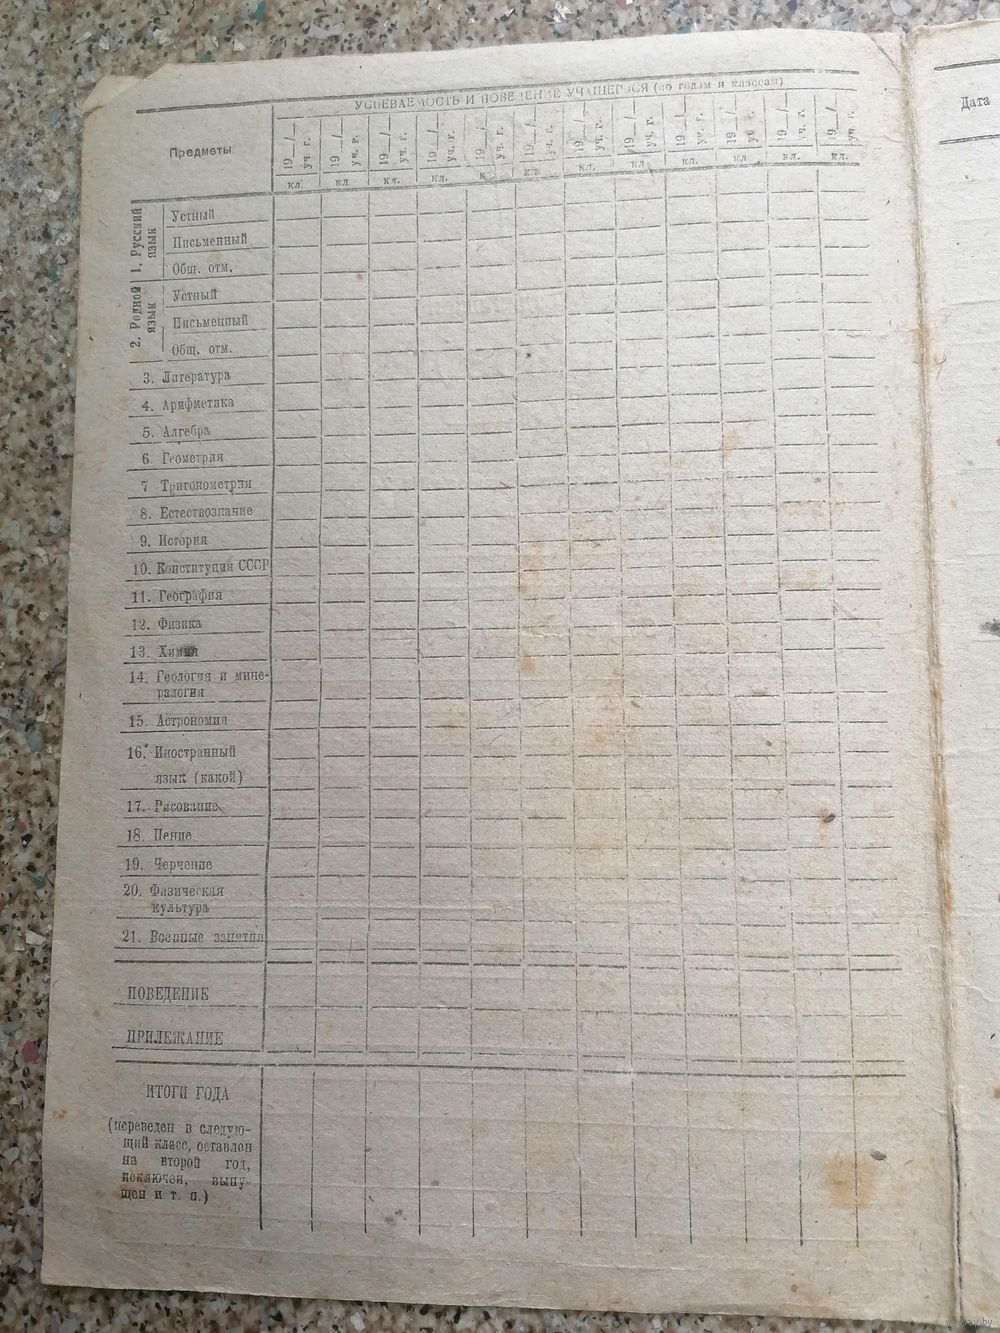 УСПЕВАЕМОСТЬ И ПОВЕДЕНИЕ УЧАЩЕГОСЯ (по годам и классам)
Дата
Предметы
19 __/__ уч. г. 19 __/__ уч. г. 19 __/__ уч. г. 19 __/__ уч. г. 19 __/__ уч. г. 19 __/__ уч. г. 19 __/__ уч. г. 19 __/__ уч. г. 19 __/__ уч. г. 19 __/__ уч. г. 19 __/__ уч. г. 19 __/__ уч. г.
кл. кл. кл. кл. кл. кл. кл. кл. кл. кл. кл. кл.
1. Русский язык
Устный
Письменный
Общ. отм.
2. Родной язык
Устный
Письменный
Общ. отм.
3. Литература
4. Арифметика
5. Алгебра
6. Геометрия
7 Тригонометрия
8. Естествознание
9. История
10. Конституция СССР
11. География
12. Физика
13. Химия
14. Геология и мине-
ралогия
15. Астрономия
16. Иностранный
язык (какой)
17. Рисование
18. Пение
19. Черчение
20. Физическая
культура
21. Военные занятия
ПОВЕДЕНИЕ
ПРИЛЕЖАНИЕ
ИТОГИ ГОДА
(переведен в следую-
щий класс, оставлен
на второй год,
исключен, выпу-
щен и т. п.)